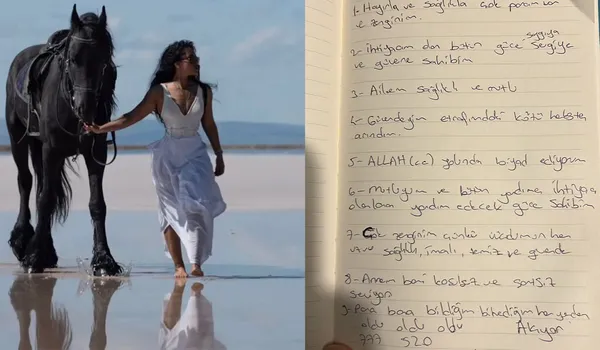 1- Hayırla ve sağlıkla çok param var
ve zenginim.
2- ihtiyacım olan bütün güce saygıya sevgiye
ve güvene sahibim
3- Ailem sağlıklı ve mutlu
4- Güvendeyim etrafımdaki kötü
arındım.
5- ALLAH (cc) yolunda ediyorum
6- Mutluyum ve bütün yardıma ihtiyacı
olanlara yardım edecek güce sahibim
7- Çok zenginim çünkü vücudumun her
sağlıklı, imalı, temiz ve güvende
8- Annem beni koşulsuz ve şartsız
seviyor
9- Para bana bildiğim bilmediğim her yerden
oldu oldu oldu Akıyor
777 520